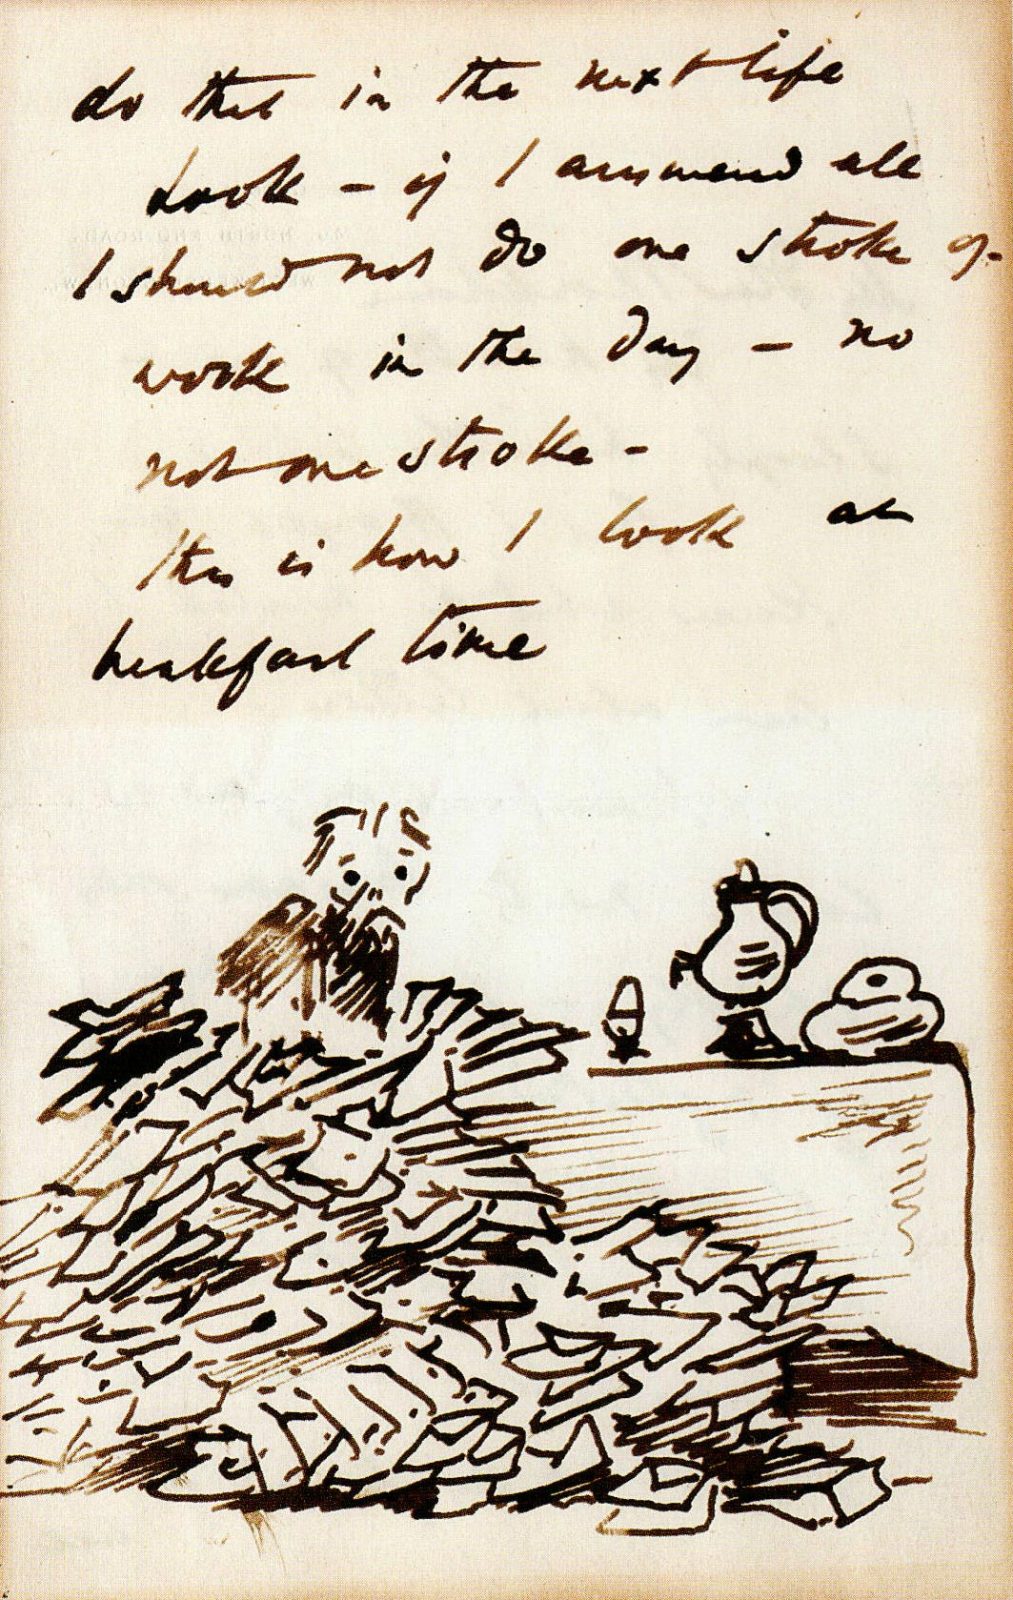 do that in the next life
Look – if I answered all
I should not do one stroke of
work in the day – no
not one stroke –
this is how I look at
breakfast time